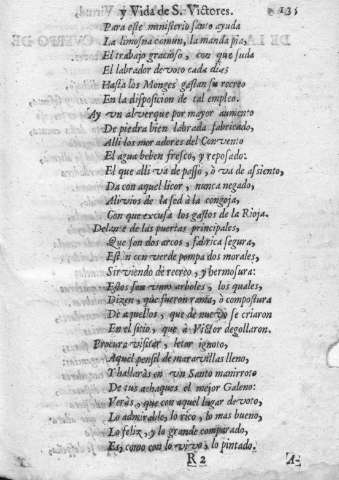 y Vida de S. Victores. 135
Para este ministerio santo ayuda
La limosna comun, la manda pia,
El trabajo gracioso, con que suda
El labrador devoto cada dia
Hasta los Monges gastan su recreo
En la disposicion de tal empleo.
Ay vn alverque por mayor aumento
De piedra bien labrada fabricado,
Alli los moradores del Convento
El agua beben fresco, y reposado:
El que alli va de passo, ò và de assiento,
Da con aquel licor, nunca negado,
Alivios de la sed à la congoja,
Con que excusa los gastos de la Rioja.
Delante de las puertas principales,
Que son dos arcos, fabrica segura,
Estàn con verde pompa dos morales,
Sirviendo de recreo, y hermosura:
Estos son vnos arboles, los quales,
Dizen, que fueron rama, ò compostura
De aquellos, que de nuevo se criaron
En el sitio, que à Victor degollaron.
Procura visitar, letor ignoto,
Aquel pensil de maravillas lleno,
Y hallaràs en vn Santo manirroto
De tus achaques el mejor Galeno:
Veràs, que con aquel lugar devoto,
Lo admirable, lo rico, lo mas bueno,
Lo feliz, y lo grande comparado,
Es, como con lo vivo, lo pintado.
R 2 A-